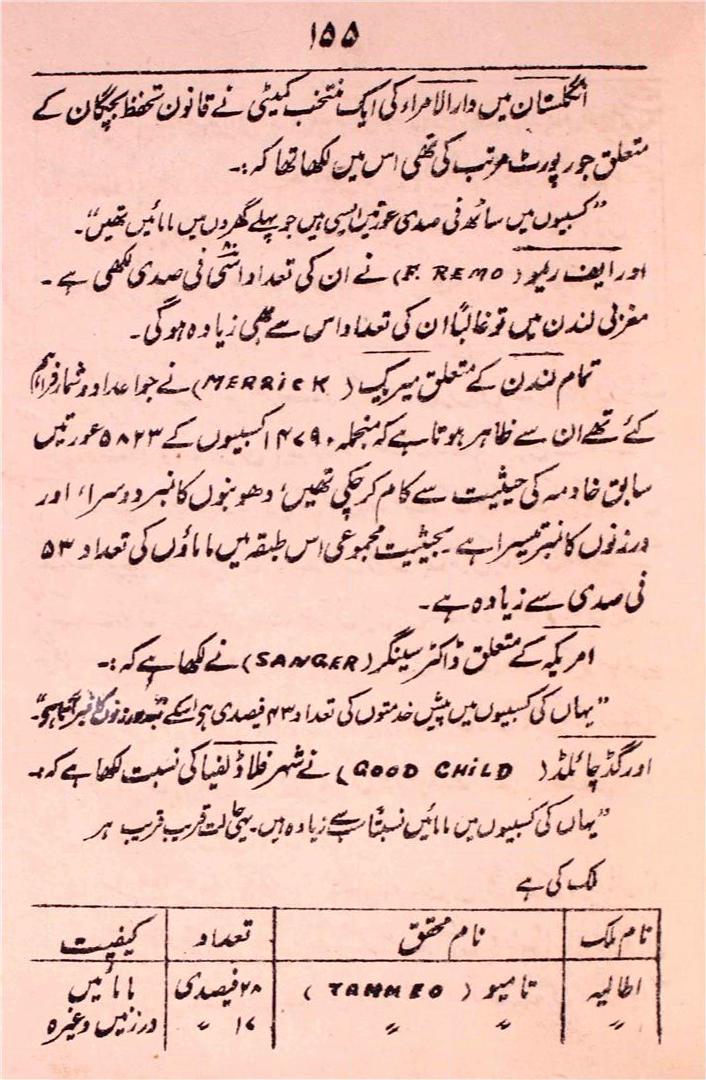 ۱۵۵
انگلستان میں دارالامراء کی ایک منتخب کمیٹی نے قانون تحفظ بچگان کے
متعلق جو رپورٹ مرتب کی تھی اس میں لکھا تھا کہ:۔
"کسبیوں میں ساٹھ فی صدی عورتیں ایسی ہیں جو پہلے گھروں میں مامائیں تھیں"۔
اور ایف ریمو (F. REMO) نے ان کی تعداد اسّی ۸۰ فی صدی لکھی ہے۔
مغربی لندن میں تو غالباً ان کی تعداد اس سے بھی زیادہ ہوگی۔
تمام لندن کے متعلق میرک (MERRICK) نے جو اعداد و شمار فراہم
کئے تھے ان سے ظاہر ہوتا ہے کہ منجملہ ۱۴۷۹۰ کسبیوں کے ۵۸۲۳ عورتیں
سابق خادمہ کی حیثیت سے کام کر چکی تھیں، دھوبنوں کا نمبر دوسرا، اور
درزنوں کا نمبر تیسرا ہے۔ بحیثیت مجموعی اس طبقہ میں ماماؤں کی تعداد ۵۳
فی صدی سے زیادہ ہے۔
امریکہ کے متعلق ڈاکٹر سینگر (SANGER) نے لکھا ہے کہ:۔
"یہاں کی کسبیوں میں پیش خدمتوں کی تعداد ۴۳ فیصدی ہے، اسکے بعد درزنوں کا نمبر آتا ہے"۔
اور گڈ چائلڈ (GOOD CHILD) نے شہر فلاڈلفیا کی نسبت لکھا ہے کہ:۔
"یہاں کی کسبیوں میں مامائیں نسبتاً سب سے زیادہ ہیں۔ یہی حالت قریب قریب ہر
ملک کی ہے
نام ملک | نام محقق | تعداد | کیفیت
اطالیہ | تامیو (TAMMEO) | ۲۸ فیصدی | مامائیں
〃 | 〃 〃 | ۱۷ 〃 | درزنیں وغیرہ